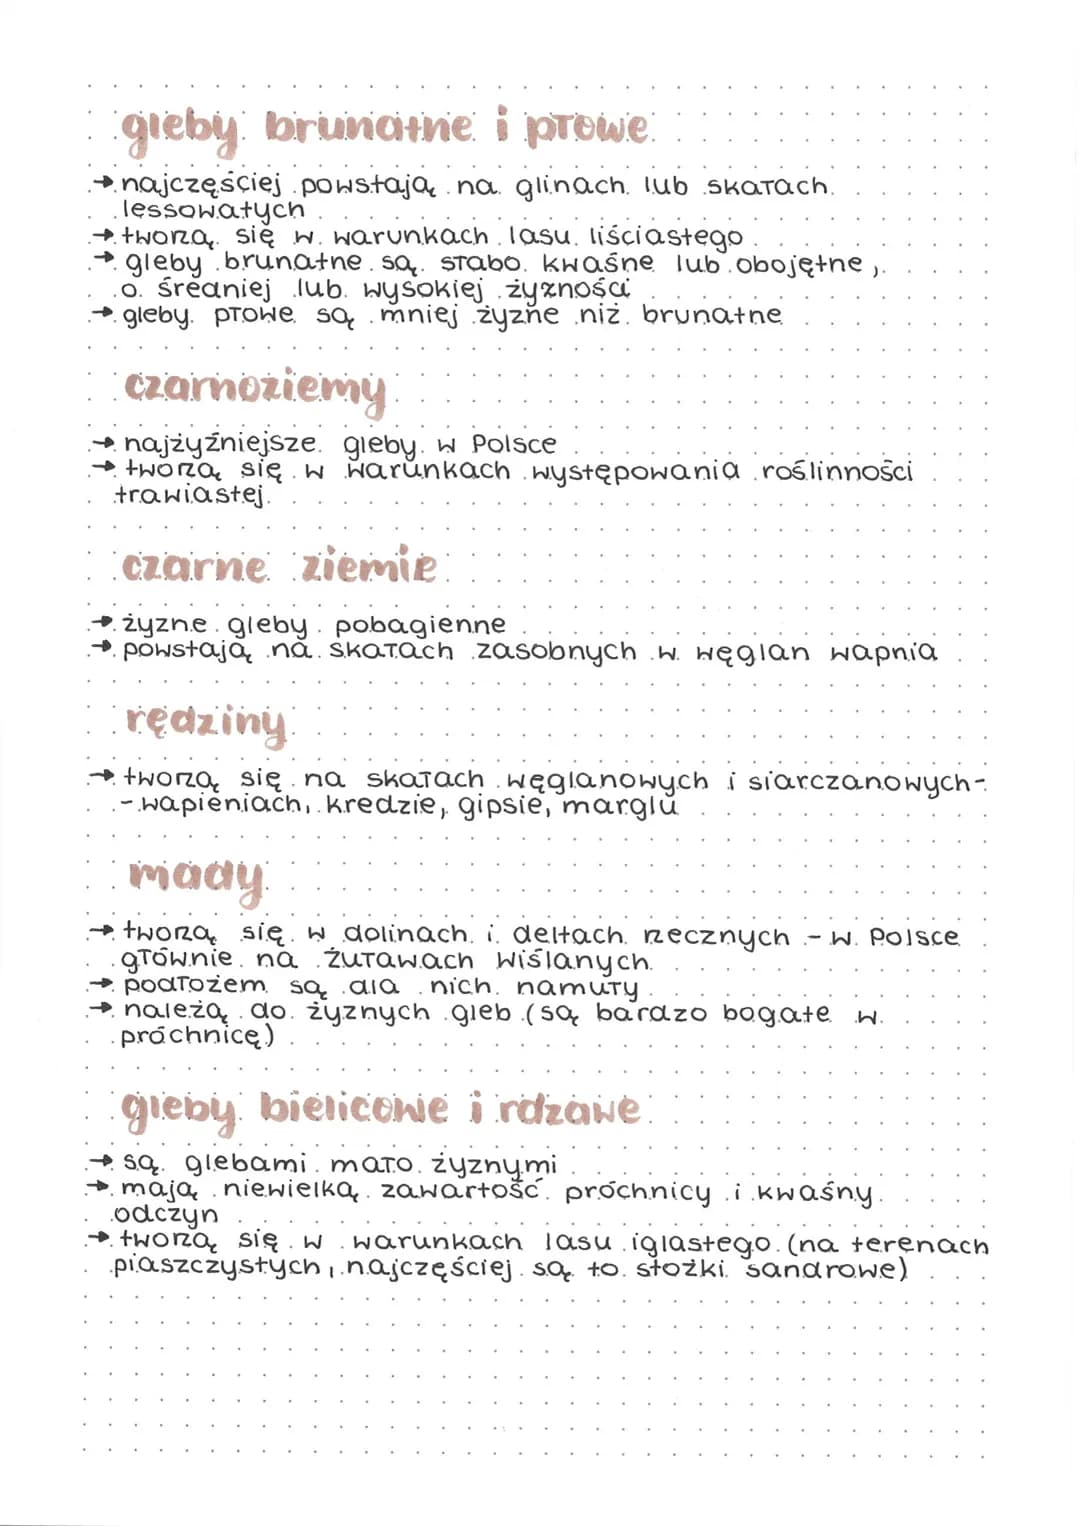 gleby brunatne i płowe
→ najczęściej powstają na glinach lub skałach
lessowatych
→ tworzą się w warunkach lasu liściastego
→ gleby brunatne są słabo kwaśne lub obojętne,
o średniej lub wysokiej żyzności
→ gleby płowe są mniej żyzne niż brunatne
czarnoziemy
→ najżyźniejsze gleby w Polsce
→ tworzą się w warunkach występowania roślinności
trawiastej
czarne ziemie
→ żyzne gleby pobagienne
→ powstają na skałach zasobnych w węglan wapnia
rędziny
→ tworzą się na skałach węglanowych i siarczanowych-
- wapieniach, kredzie, gipsie, marglu
mady
→ tworzą się w dolinach i deltach rzecznych - w Polsce
głównie na Żuławach Wiślanych
→ podłożem są dla nich namuły
→ należą do żyznych gleb (są bardzo bogate w
próchnicę)
gleby bielicowe i rdzawe
→ są glebami mało żyznymi
→ mają niewielką zawartość próchnicy i kwaśny
odczyn
→ tworzą się w warunkach lasu iglastego (na terenach
piaszczystych, najczęściej są to stożki sandrowe)